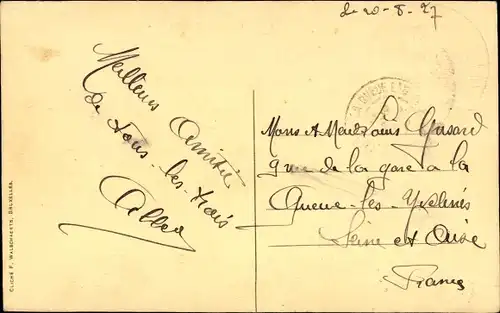 Le 20-8-27
Meilleurs Amitié
de tous-les-trois
LA QUEUE LES
Mons et Madame Gusard
9 rue de la gare a la
Queue-les-Yvelines
Seine et Oise
France
CLICHÉ F. WALSCHAERTS, BRUXELLES.